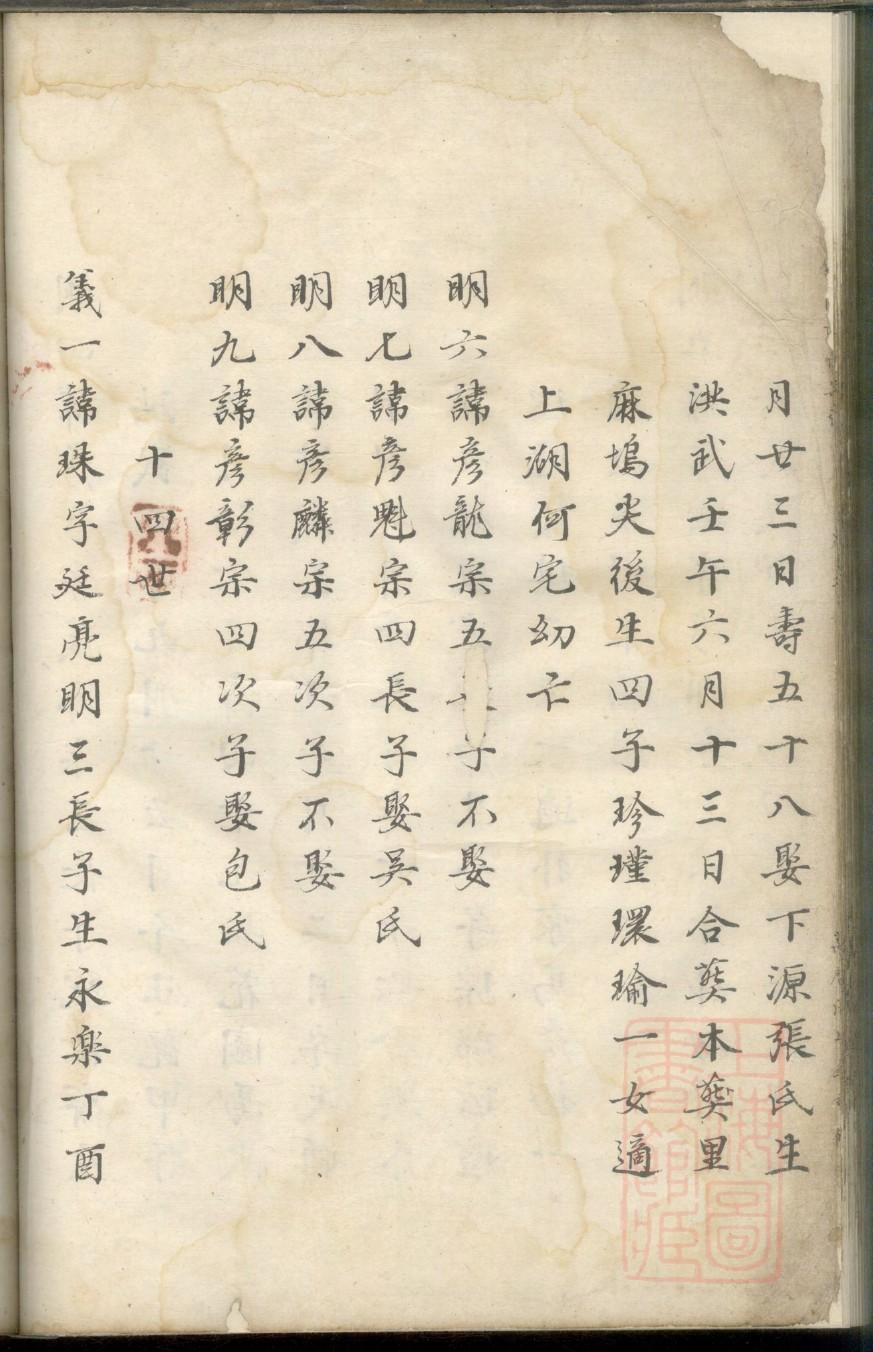 月廿三日壽五十八娶下源張氏生
洪武壬午六月十三日合葬本葬里
麻塢尖後生四子珍瑾環瑜一女適
上湖何宅幼亡
明六諱彦龍宗五子不娶
明七諱彦魁宗四長子娶吴氏
明八諱彦麟宗五次子不娶
明九諱彦彰宗四次子娶包氏
十四世
義一諱珠字廷亮明三長子生永楽丁酉
上海圖書館藏